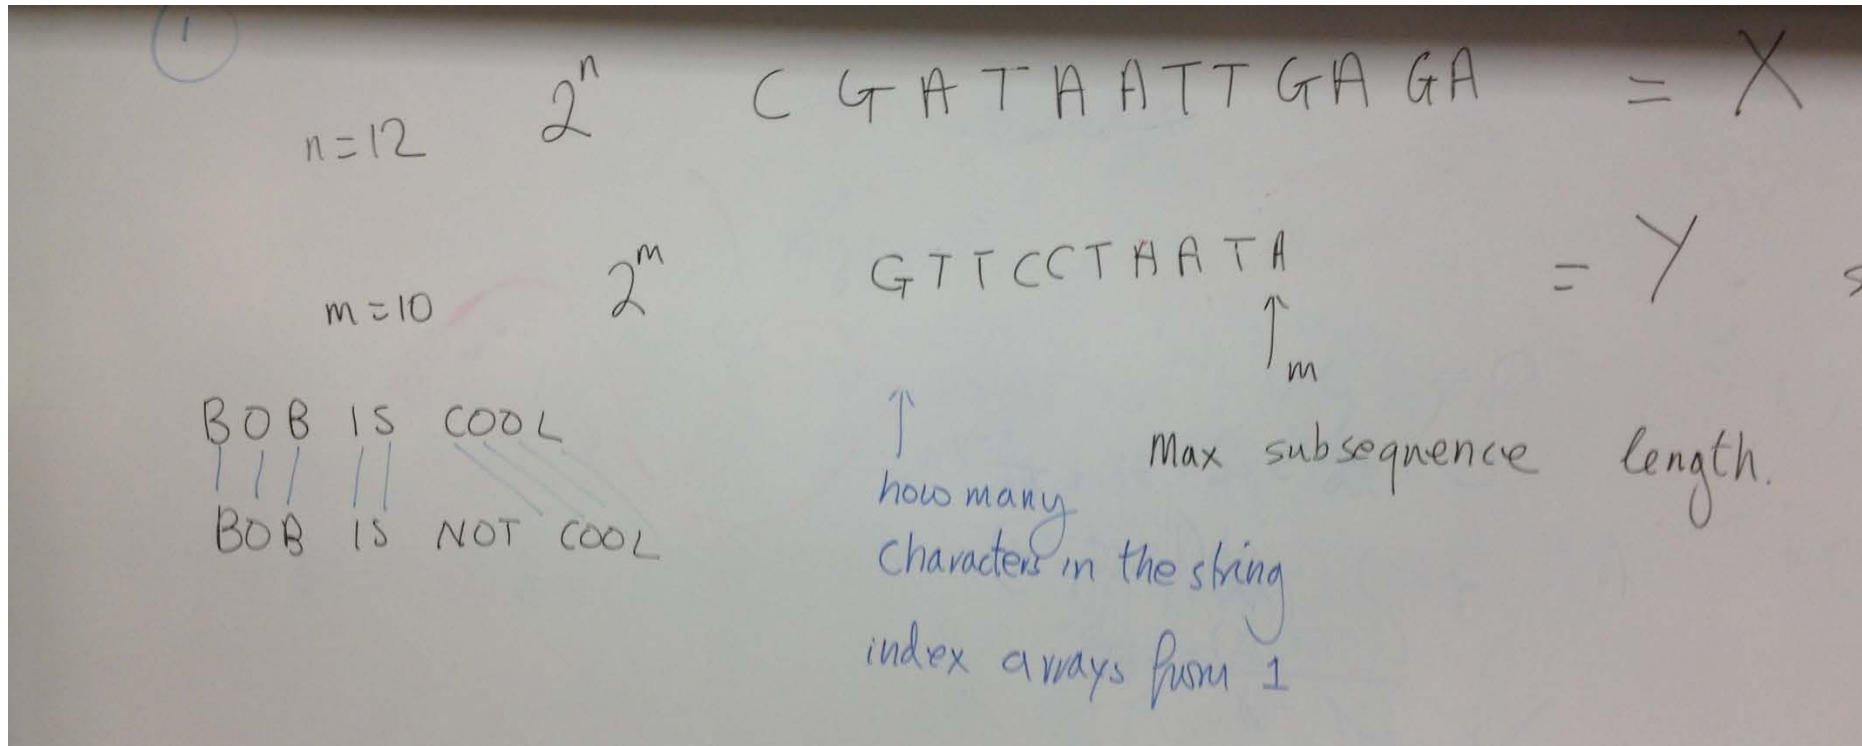 1
n=12 2^n C G A T A A T T G A G A = X
m=10 2^m G T T C C T A A T A = Y
↑ m
BOB IS COOL
BOB IS NOT COOL
↑
how many
Characters in the string
index arrays from 1
Max subsequence length.